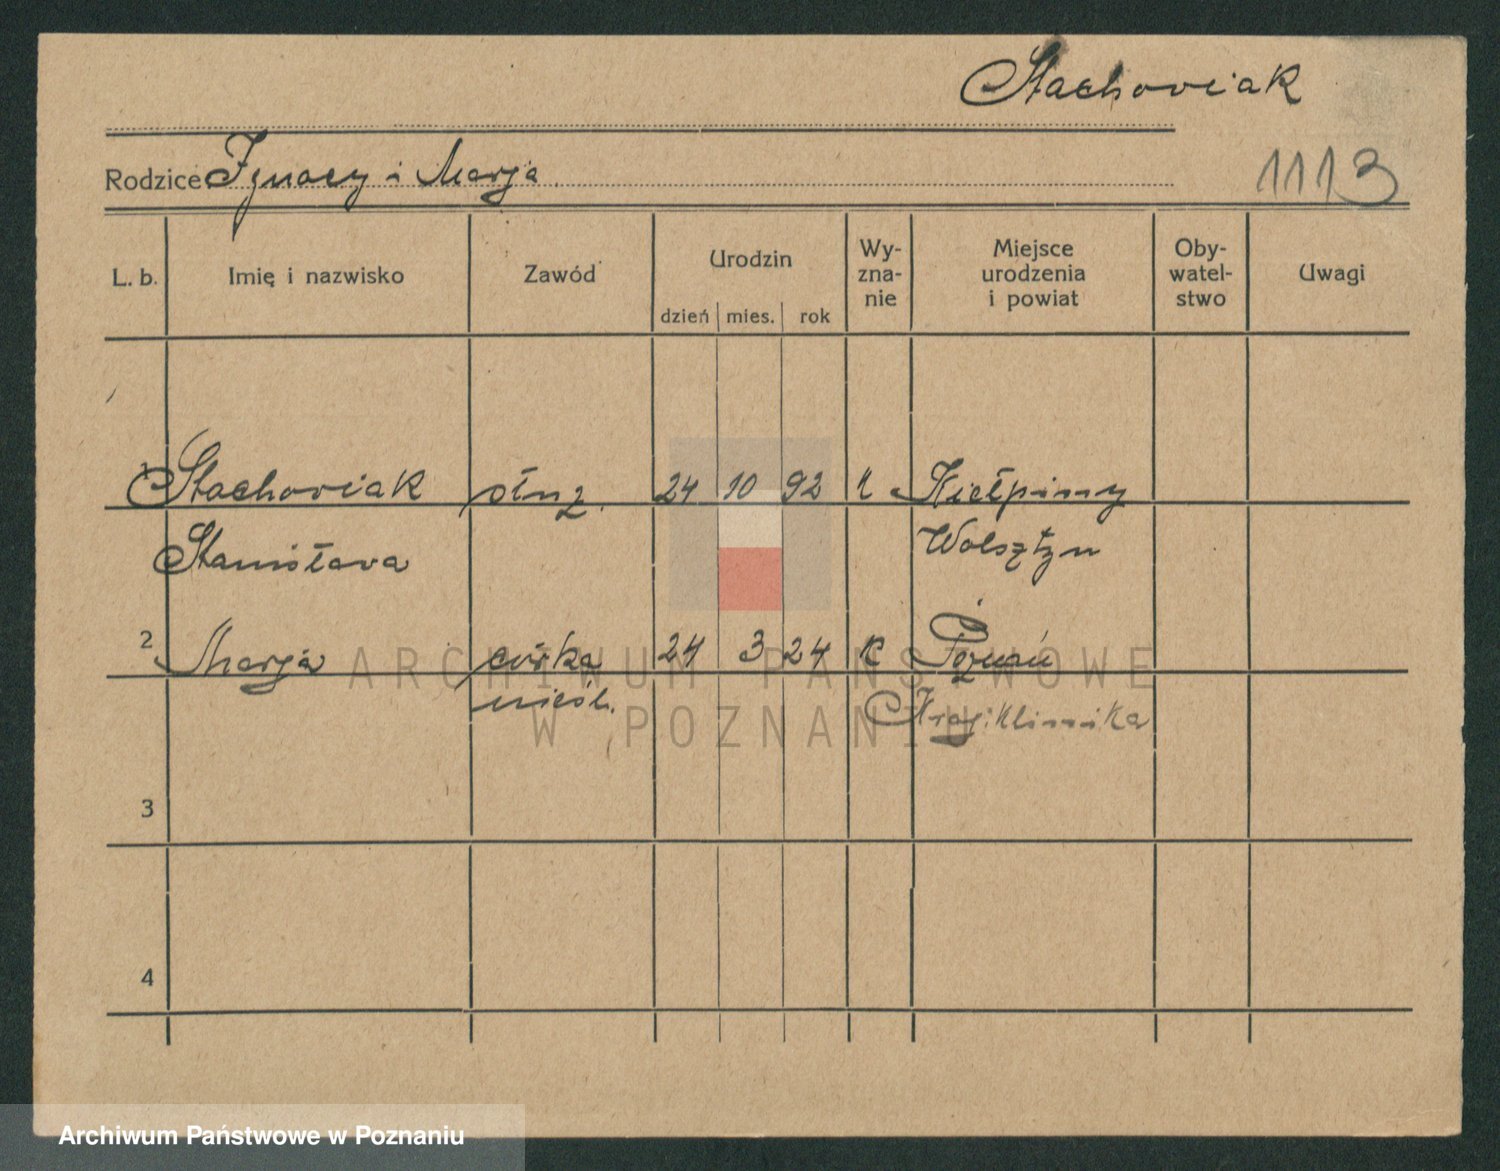 Stachoviak
Rodzice Ignacy i Marja
1113
L. b.
Imię i nazwisko
Zawód
Urodzin
dzień mies. rok
Wy-
zna-
nie
Miejsce
urodzenia
i powiat
Oby-
watel-
stwo
Uwagi
1 Stachoviak służ. 24 10 92 k Kiełpiny
Stanisłava Wolsztyn
2 Marja córka 24 3 24 k Poznań
nieśl. Kraj. Klinika
3
4
ARCHIWUM PAŃSTWOWE
W POZNANIU
Archiwum Państwowe w Poznaniu